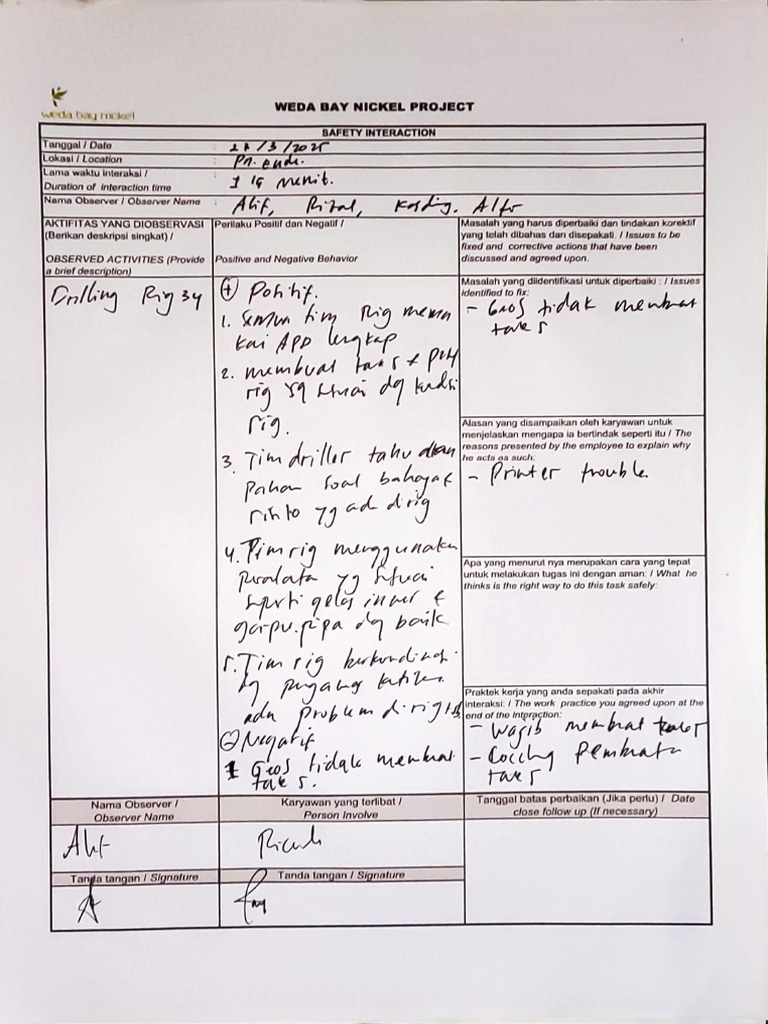 weda bay nickel
WEDA BAY NICKEL PROJECT
SAFETY INTERACTION
Tanggal / Date : /3/2025
Lokasi / Location :
Lama waktu interaksi /
Duration of interaction time : menit.
Nama Observer / Observer Name : Alif, Rizal,
AKTIFITAS YANG DIOBSERVASI
(Berikan deskripsi singkat) /
OBSERVED ACTIVITIES (Provide
a brief description)
Perilaku Positif dan Negatif /
Positive and Negative Behavior
Masalah yang harus diperbaiki dan tindakan korektif
yang telah dibahas dan disepakati. / Issues to be
fixed and corrective actions that have been
discussed and agreed upon.
Drilling Rig 34
(+) Positif.
1. Semua tim Rig mema
kai APD lengkap
2. membuat
rig yg sesuai dg
rig.
3. Tim driller tahu
paham soal bahaya &
yg ada di rig
4. Tim rig menggunakan
yg sesuai
seperti inner &
pipa dg baik
5. Tim rig
dg
ada problem di rig
(-) Negatif
1 Geos tidak membuat
take 5.
Masalah yang diidentifikasi untuk diperbaiki : / Issues
identified to fix:
- Geos tidak membuat
take 5
Alasan yang disampaikan oleh karyawan untuk
menjelaskan mengapa ia bertindak seperti itu / The
reasons presented by the employee to explain why
he acts as such:
- Printer trouble
Apa yang menurut nya merupakan cara yang tepat
untuk melakukan tugas ini dengan aman: / What he
thinks is the right way to do this task safely:
Praktek kerja yang anda sepakati pada akhir
interaksi: / The work practice you agreed upon at the
end of the interaction:
- Wajib membuat
-
take 5
Nama Observer /
Observer Name
Karyawan yang terlibat /
Person Involve
Tanggal batas perbaikan (Jika perlu) / Date
close follow up (If necessary)
Alif
Tanda tangan / Signature
Tanda tangan / Signature